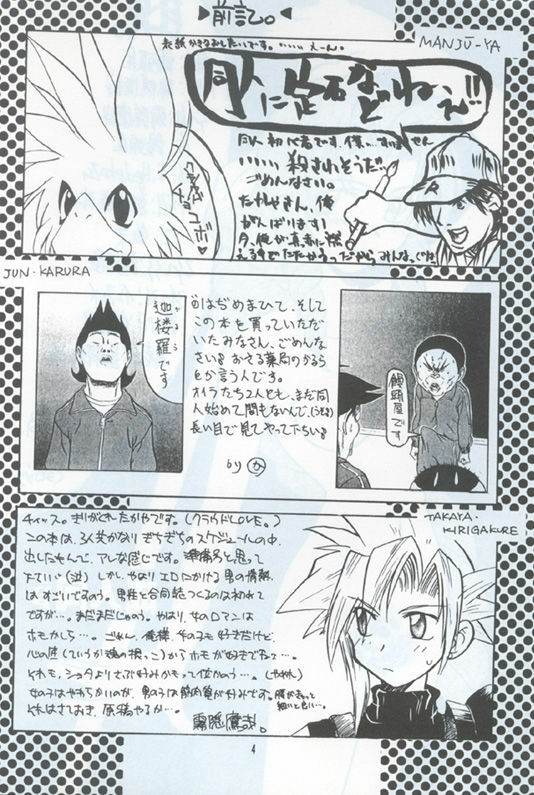 前記。
MANJŪ-YA
同人に定石などねぇ!!
同人初心者です、僕…すいません
殺されそうだ
ごめんなさい。
たかやさん、俺
がんばります!
JUN・KARURA
迦楼羅です
はぢめまひて、そして
この本を買っていただ
いたみなさん、ごめんな
さい。おさる薬局のかるら
とか言う人です。
オイラたち2人とも、まだ同
人始めて間もないんで、
長い目で見てやって下ちい。
by か
饅頭屋です
TAKAYA・
KIRIGAKURE
チィッス。きりがくれたかやです。(クラウドLOVE。)
この本は、3人共かなりぎちぎちのスケジュールの中、
出したもんで、アレな感じです。準備号と思って
下さい(泣)しかし、やはりエロにかける男の情熱
はすごいですのう。男性と合同誌つくるのは初めて
ですが…。まだまだじゅのう。やはり、女のロマンは
ホモかしら…。ごめん、俺様、女のコも好きだけど、
心の底(ていうか魂の根っこ)からホモが好きでねェ…。
それも、ショタより
女の子はやわらかいのが、男の子は筋肉質が好みです。
それはさておき、原稿やるか…。
霧隠鷹哉。
4